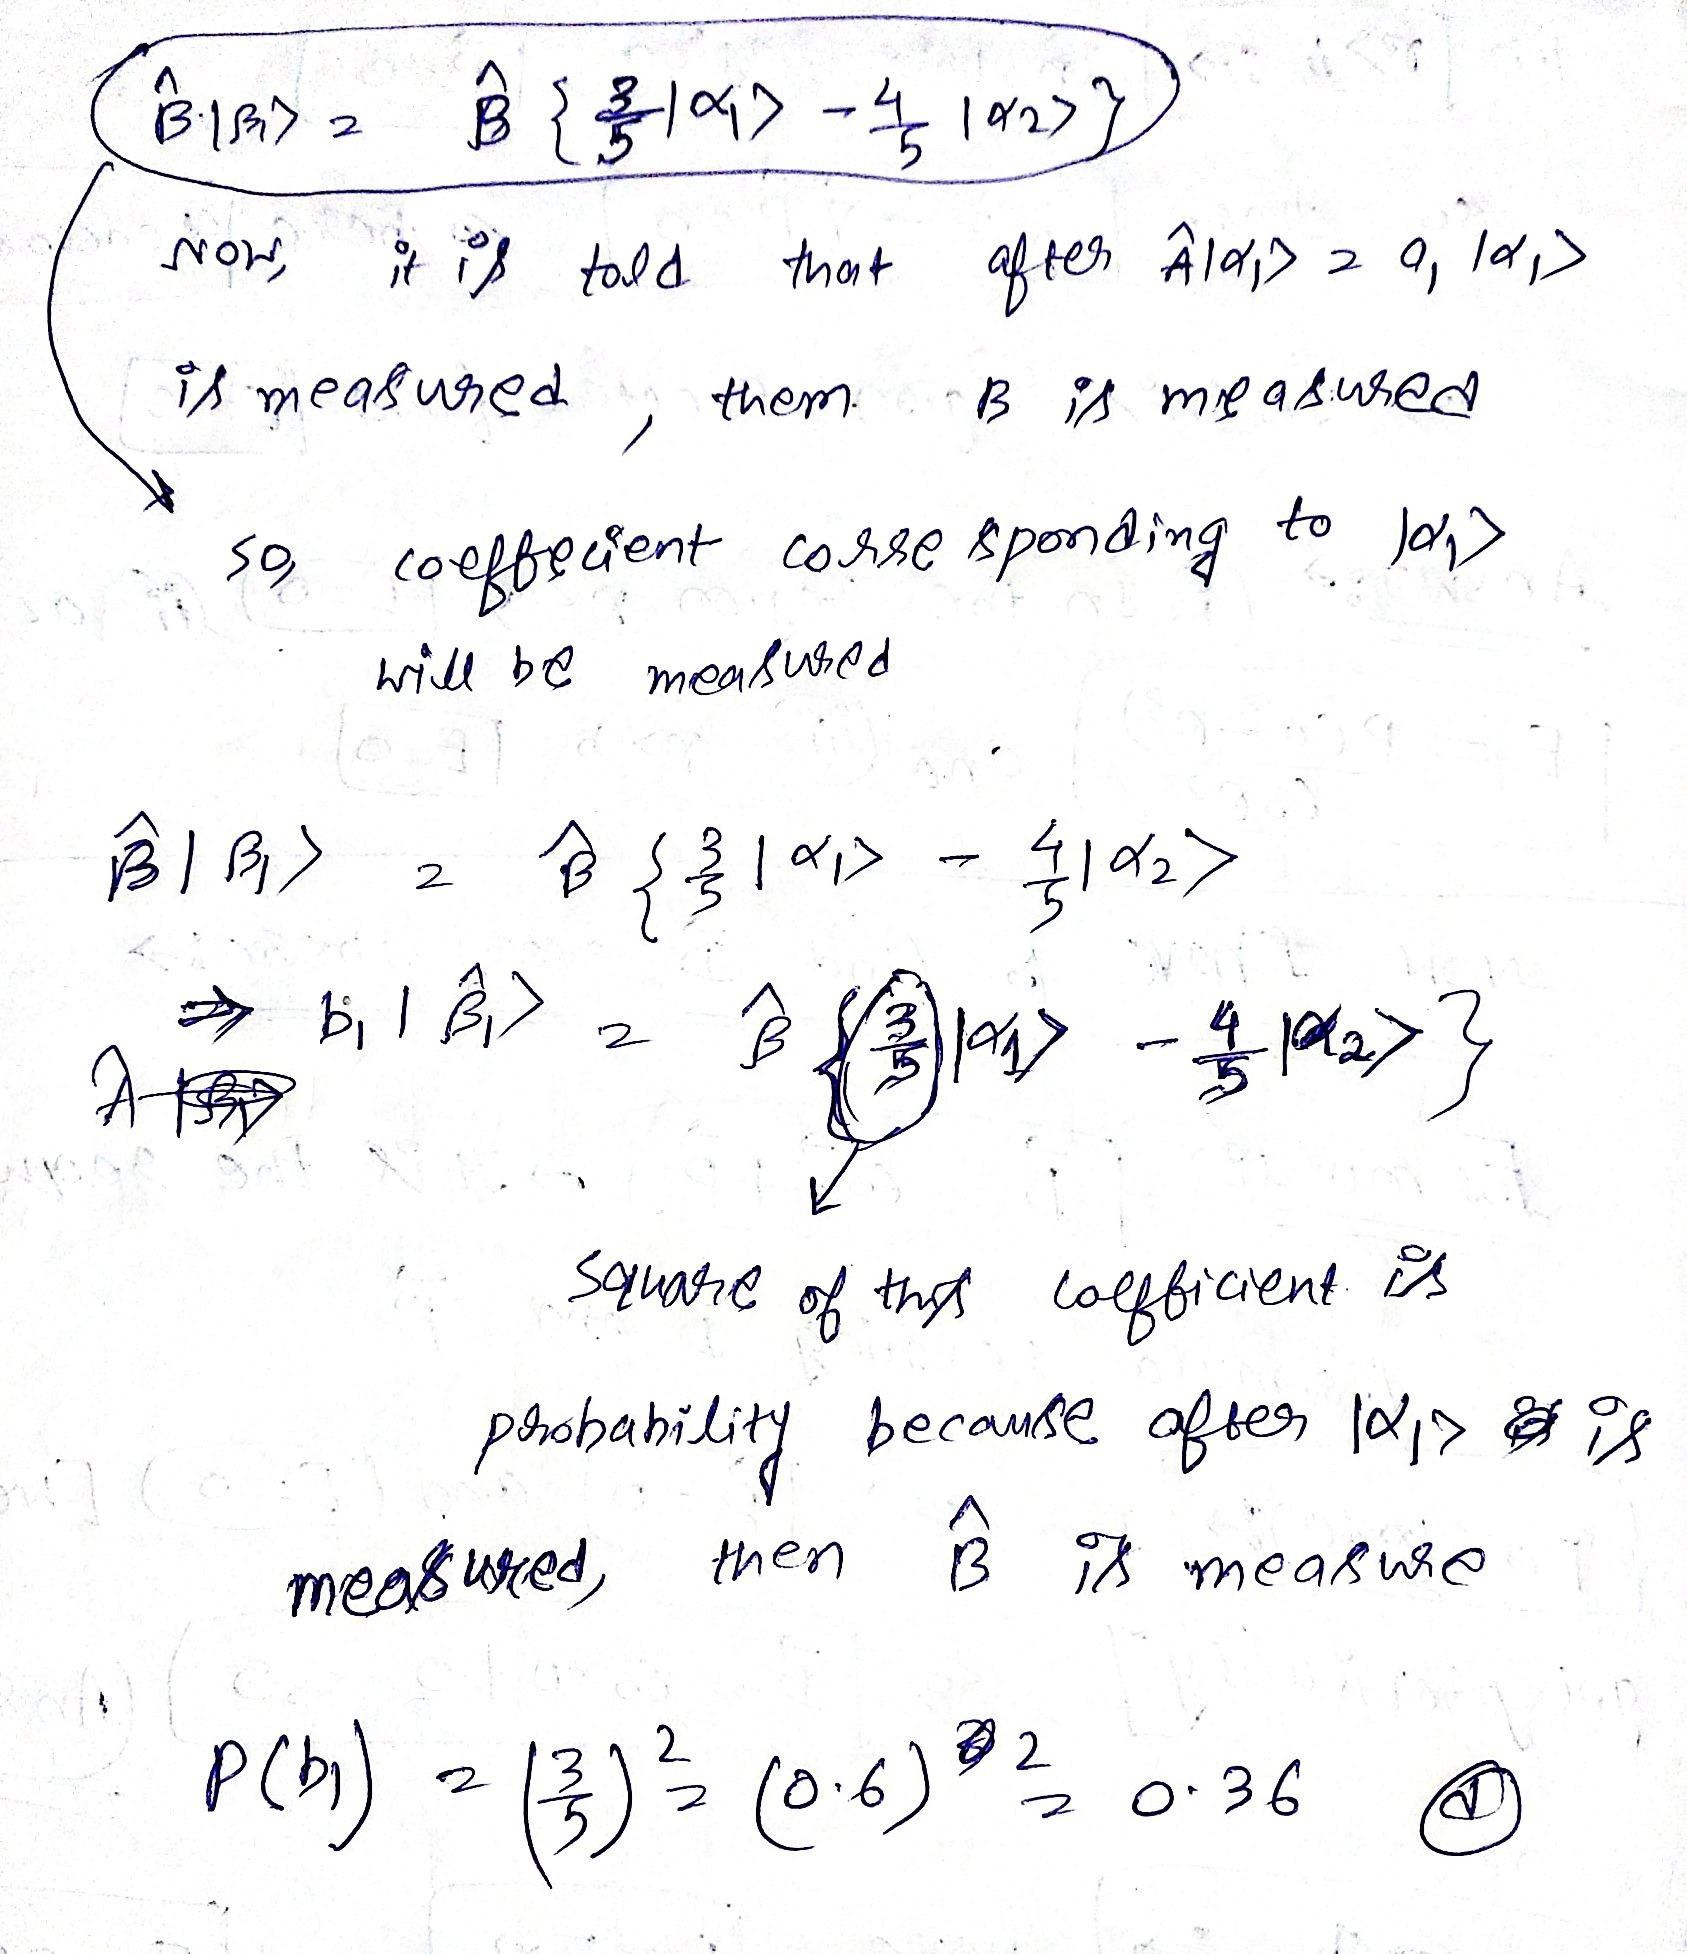 B̂|β₁⟩ = B̂ { 3/5 |α₁⟩ - 4/5 |α₂⟩ }
Now, it is told that after Â|α₁⟩ = a₁ |α₁⟩
is measured, them B is measured
so, coeffecient corresponding to |α₁⟩
will be measured
B̂ | β₁⟩ = B̂ { 3/5 | α₁⟩ - 4/5 | α₂⟩
⇒ b₁ | β̂₁⟩ = B̂ { 3/5 |α₁⟩ - 4/5 |α₂⟩ }
Â |β₁⟩
square of this coefficient is
probability because after |α₁⟩ is
measured, then B̂ is measure
P(b₁) = (3/5)² = (0.6)² = 0.36 (d)